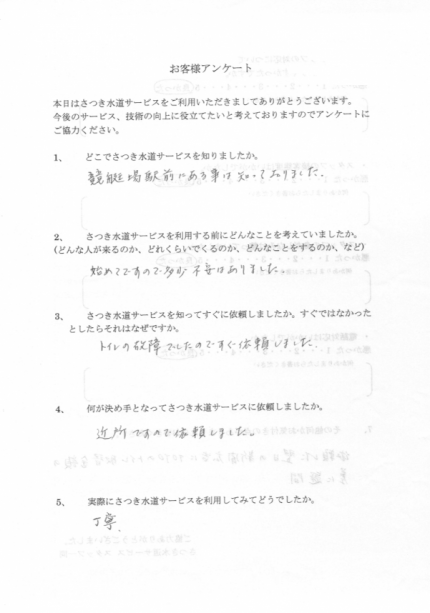 お客様アンケート
本日はさつき水道サービスをご利用いただきましてありがとうございます。
今後のサービス、技術の向上に役立てたいと考えておりますのでアンケートに
ご協力ください。
1、 どこでさつき水道サービスを知りましたか。
競艇場駅前にある事は知っておりました。
2、 さつき水道サービスを利用する前にどんなことを考えていましたか。
(どんな人が来るのか、どれくらいでくるのか、どんなことをするのか、など)
始めてですので多少不安はありました。
3、 さつき水道サービスを知ってすぐに依頼しましたか。すぐではなかった
としたらそれはなぜですか。
トイレの故障でしたのですぐ依頼しました。
4、 何が決め手となってさつき水道サービスに依頼しましたか。
近所ですので依頼しました。
5、 実際にさつき水道サービスを利用してみてどうでしたか。
丁寧、